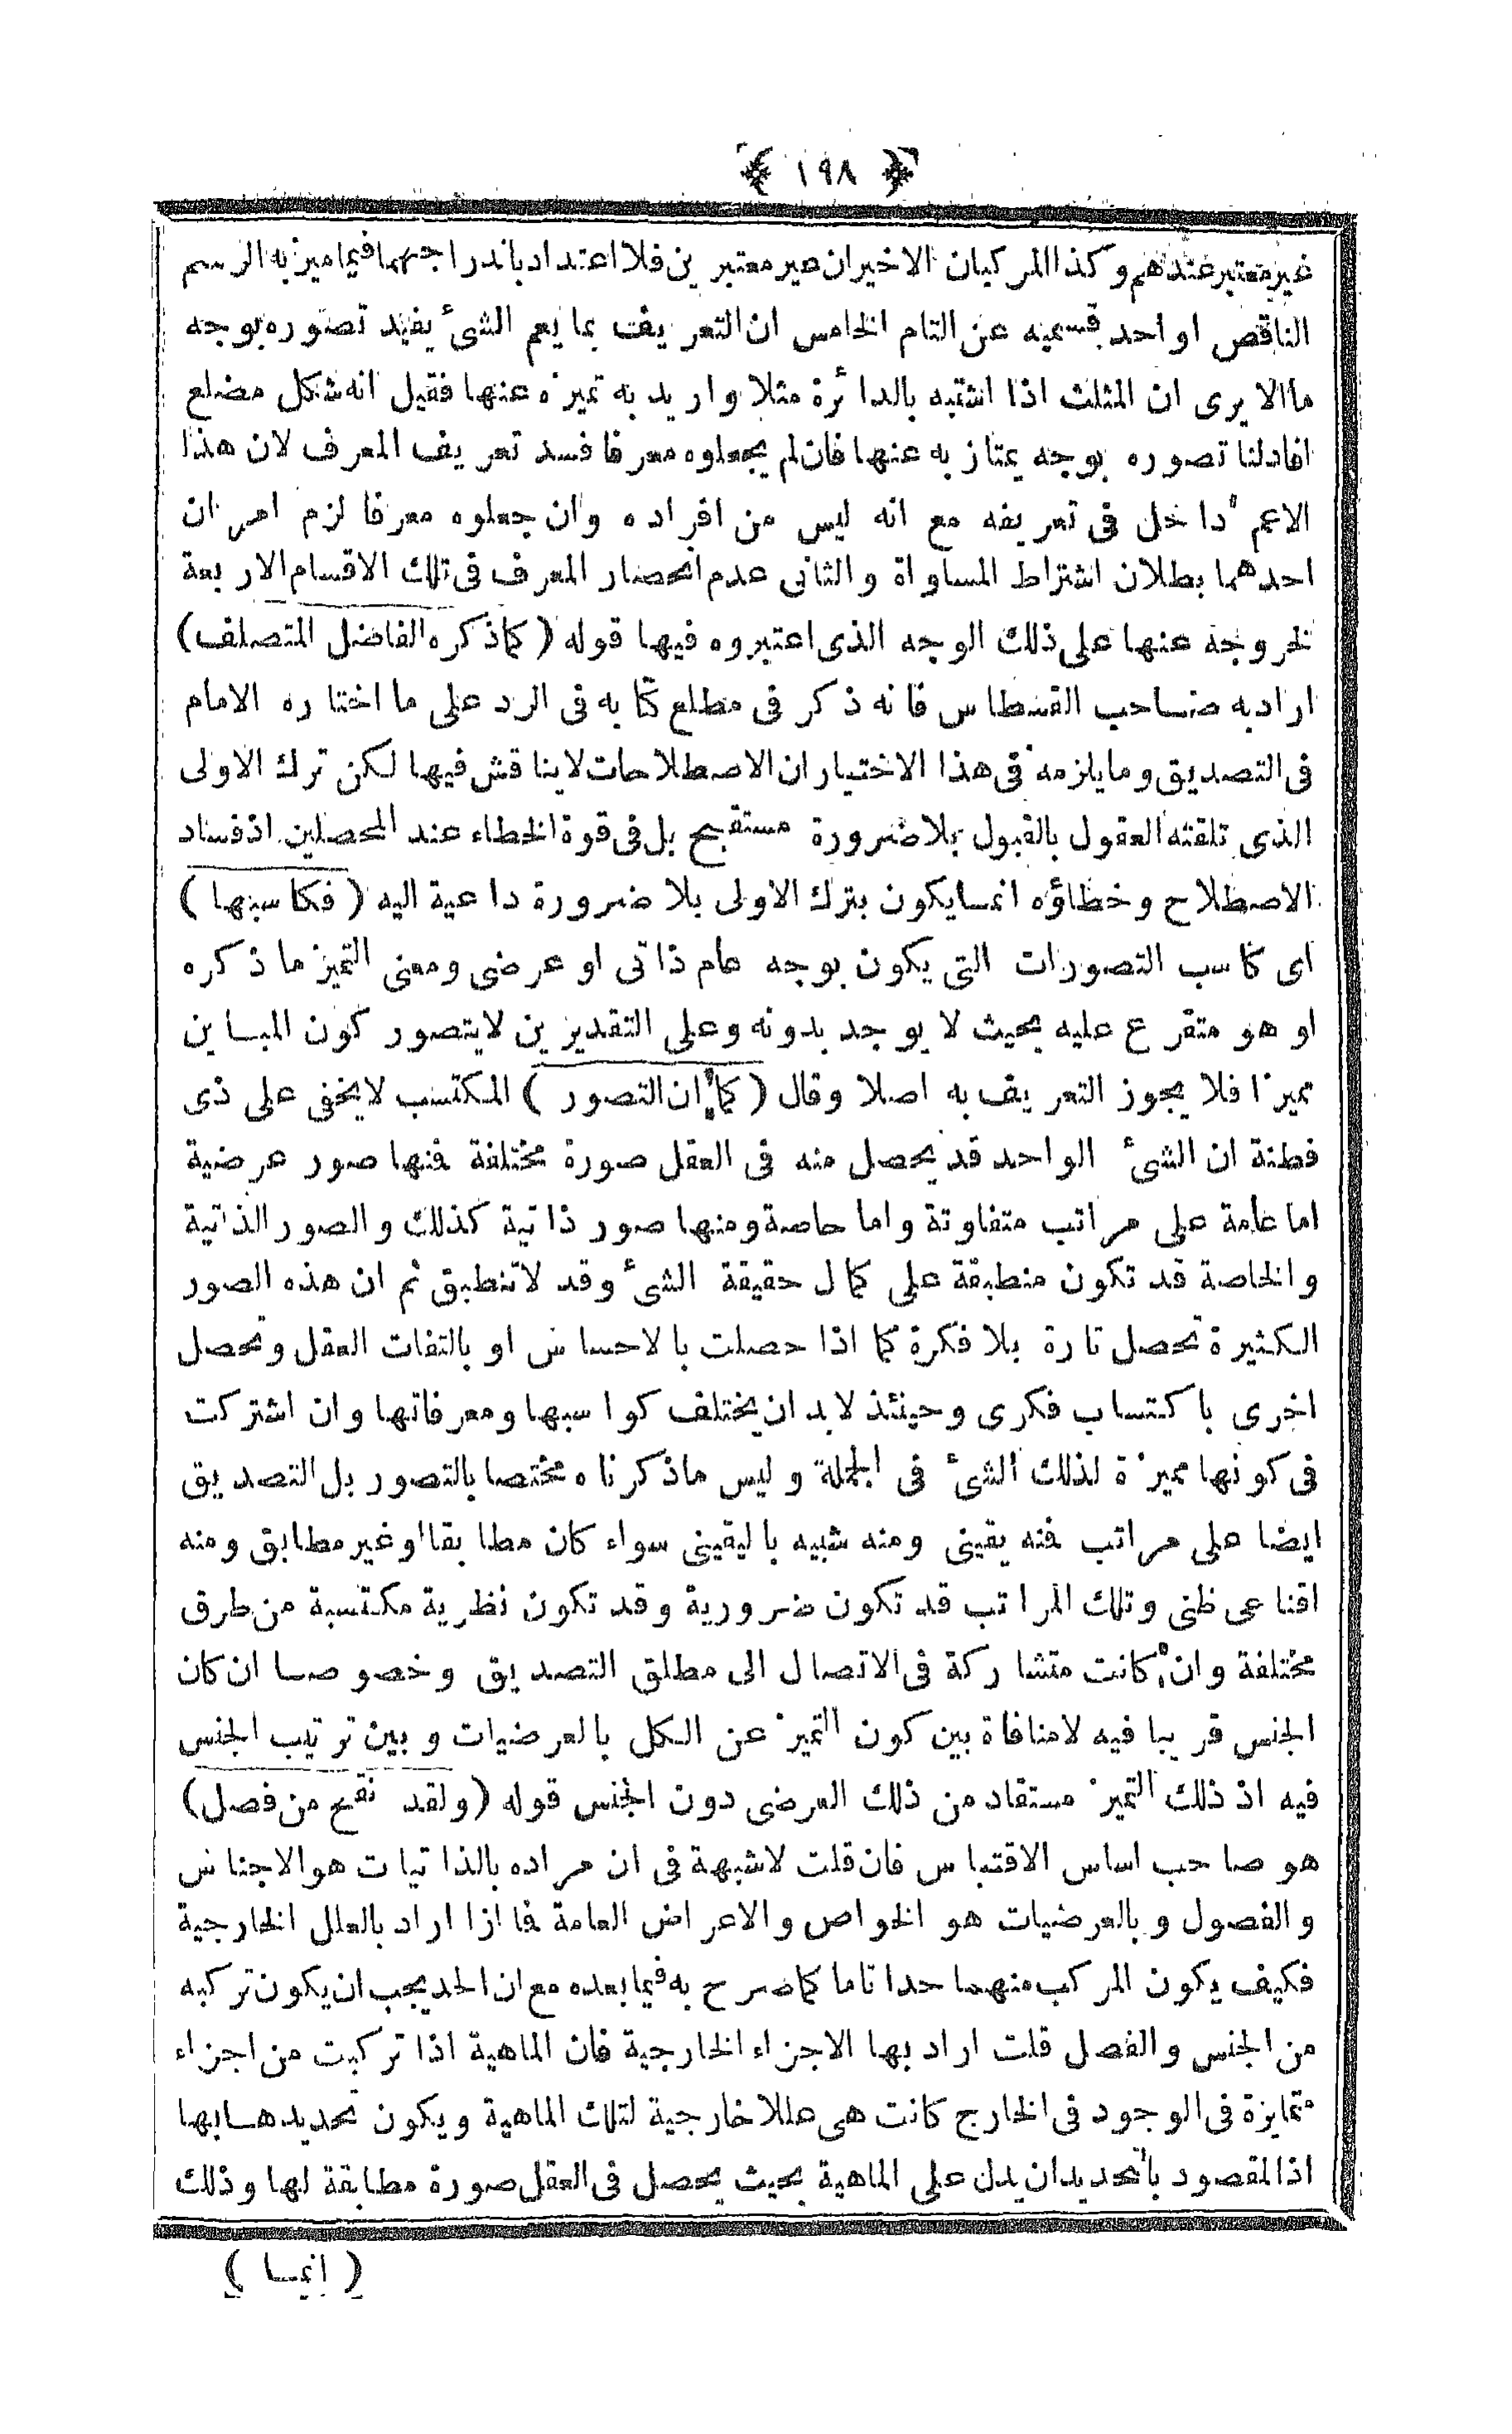 ﴿ ١٩٨ ﴾
غير معتبر عندهم وكذا المركبان الاخيران غير معتبرين فلا اعتداد باندراجهما فيما ميز به الرسم
الناقص او احد قسميه عن التام الخامس ان التعريف بما يعم الشئ يفيد تصوره بوجه
ما الا يرى ان المثلث اذا اشتبه بالدائرة مثلا واريد به تميزه عنها فقيل انه شكل مضلع
افادلنا تصوره بوجه يمتاز به عنها فان لم يجعلوه معرفا فسد تعريف المعرف لان هذا
الاعم داخل فى تعريفه مع انه ليس من افراده وان جعلوه معرفا لزم امران
احدهما بطلان اشتراط المساواة والثانى عدم انحصار المعرف فى تلك الاقسام الاربعة
لخروجه عنها على ذلك الوجه الذى اعتبروه فيها قوله (كما ذكره الفاضل المتصلف)
اراد به صاحب القسطاس فانه ذكر فى مطلع كتابه فى الرد على ما اختاره الامام
فى التصديق وما يلزمه فى هذا الاختيار ان الاصطلاحات لا يناقش فيها لكن ترك الاولى
الذى تلقته العقول بالقبول بلا ضرورة مستقبح بل فى قوة الخطاء عند المحصلين اذ فساد
الاصطلاح وخطاؤه انما يكون بترك الاولى بلا ضرورة داعية اليه (فكاسبها)
اى كاسب التصورات التى يكون بوجه عام ذاتى او عرضى ومعنى التميز ما ذكره
او هو متفرع عليه بحيث لا يوجد بدونه وعلى التقديرين لا يتصور كون المباين
مميزا فلا يجوز التعريف به اصلا وقال (كما ان التصور) المكتسب لا يخفى على ذى
فطنة ان الشئ الواحد قد يحصل منه فى العقل صورة مختلفة فمنها صور عرضية
اما عامة على مراتب متفاوتة واما خاصة ومنها صور ذاتية كذلك والصور الذاتية
والخاصة قد تكون منطبقة على كمال حقيقة الشئ وقد لا تنطبق ثم ان هذه الصور
الكثيرة تحصل تارة بلا فكرة كما اذا حصلت بالاحساس او بالتفات العقل وتحصل
اخرى باكتساب فكرى وحينئذ لابد ان يختلف كواسبها ومعرفاتها وان اشتركت
فى كونها مميزة لذلك الشئ فى الجملة وليس ماذكرناه مختصا بالتصور بل التصديق
ايضا على مراتب فمنه يقينى ومنه شبيه باليقينى سواء كان مطابقا او غير مطابق ومنه
اقناعى ظنى وتلك المراتب قد تكون ضرورية وقد تكون نظرية مكتسبة من طرق
مختلفة وان كانت متشاركة فى الاتصال الى مطلق التصديق وخصوصا ان كان
الجنس قريبا فيه لا منافاة بين كون التميز عن الكل بالعرضيات وبين ترتيب الجنس
فيه اذ ذلك التميز مستفاد من ذلك العرضى دون الجنس قوله (ولقد نقح من فصل)
هو صاحب اساس الاقتباس فان قلت لاشبهة فى ان مراده بالذاتيات هو الاجناس
والفصول وبالعرضيات هو الخواص والاعراض العامة فماذا اراد بالعلل الخارجية
فكيف يكون المركب منهما حدا تاما كما صرح به فيما بعده مع ان الحد يجب ان يكون تركبه
من الجنس والفصل قلت اراد بها الاجزاء الخارجية فان الماهية اذا تركبت من اجزاء
متمايزة فى الوجود فى الخارج كانت هى عللا خارجية لتلك الماهية ويكون تحديدها بها
اذ المقصود بالتحديد ان يدل على الماهية بحيث يحصل فى العقل صورة مطابقة لها وذلك
( انما )